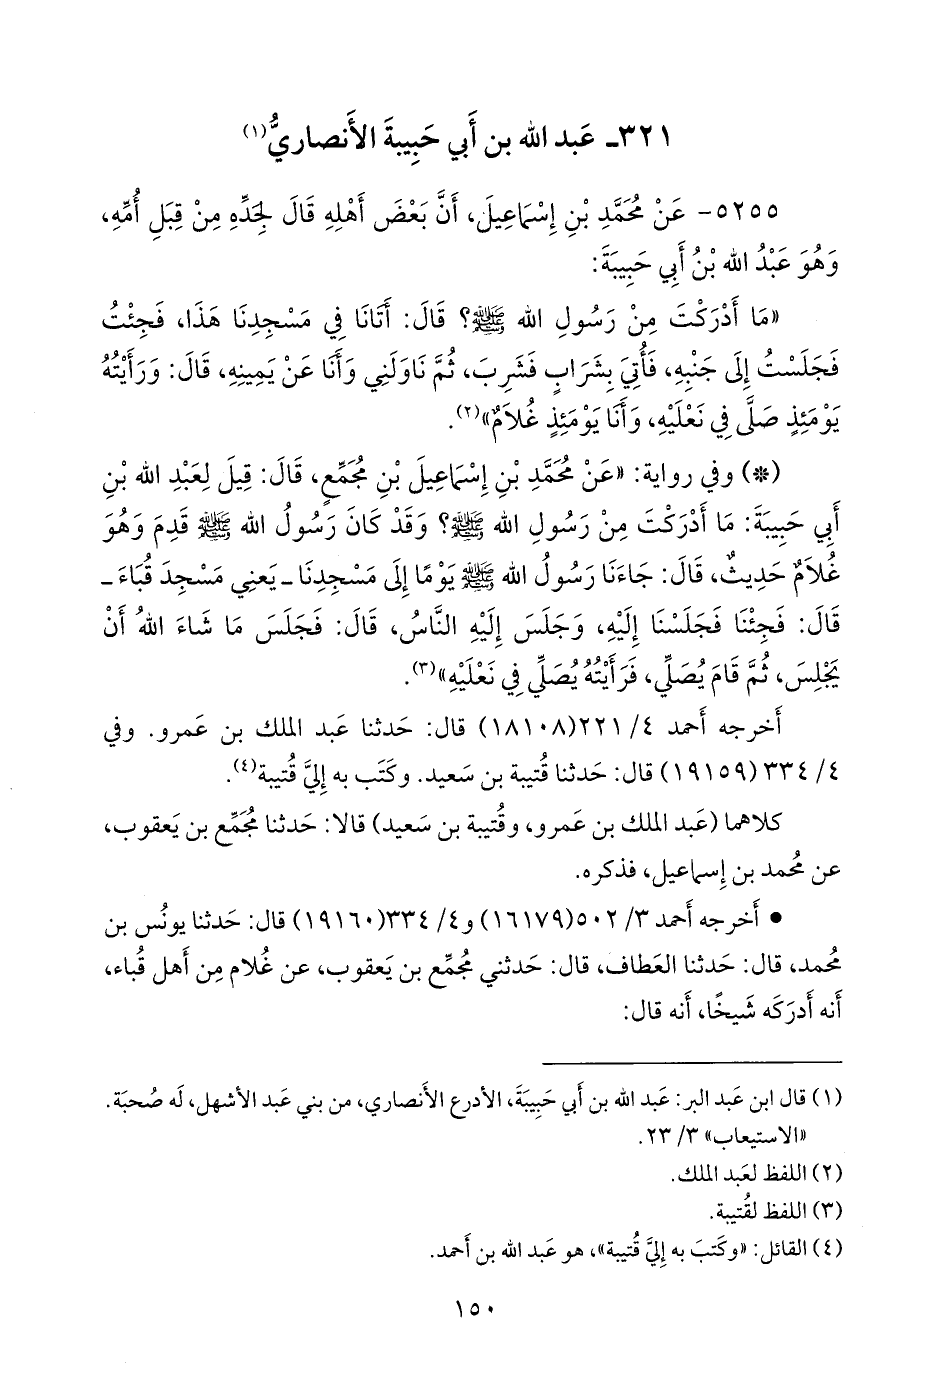 ٣٢١ـ عَبد الله بن أَبي حَبِيبةَ الأَنصاريُّ(١)
٥٢٥٥- عَنْ مُحَمَّدِ بْنِ إِسْمَاعِيلَ، أَنَّ بَعْضَ أَهْلِهِ قَالَ لِجَدِّهِ مِنْ قِبَلِ أُمِّهِ،
وَهُوَ عَبْدُ الله بْنُ أَبِي حَبِيبَةَ:
«مَا أَدْرَكْتَ مِنْ رَسُولِ الله ﷺ؟ قَالَ: أَتَانَا فِي مَسْجِدِنَا هَذَا، فَجِئْتُ
فَجَلَسْتُ إِلَى جَنْبِهِ، فَأُتِيَ بِشَرَابٍ فَشَرِبَ، ثُمَّ نَاوَلَنِي وَأَنَا عَنْ يَمِينِهِ، قَالَ: وَرَأَيْتُهُ
يَوْمَئِذٍ صَلَّى فِي نَعْلَيْهِ، وَأَنَا يَوْمَئِذٍ غُلَامٌ»(٢).
(*) وفي رواية: «عَنْ مُحَمَّدِ بْنِ إِسْمَاعِيلَ بْنِ مُجَمِّعٍ، قَالَ: قِيلَ لِعَبْدِ الله بْنِ
أَبِي حَبِيبَةَ: مَا أَدْرَكْتَ مِنْ رَسُولِ الله ﷺ؟ وَقَدْ كَانَ رَسُولُ الله ﷺ قَدِمَ وَهُوَ
غُلَامٌ حَدِيثٌ، قَالَ: جَاءَنَا رَسُولُ الله ﷺ يَوْمًا إِلَى مَسْجِدِنَا ـ يَعنِي مَسْجِدَ قُبَاءَ ـ
قَالَ: فَجِئْنَا فَجَلَسْنَا إِلَيْهِ، وَجَلَسَ إِلَيْهِ النَّاسُ، قَالَ: فَجَلَسَ مَا شَاءَ اللهُ أَنْ
يَجْلِسَ، ثُمَّ قَامَ يُصَلِّي، فَرَأَيْتُهُ يُصَلِّي فِي نَعْلَيْهِ»(٣).
أَخرجه أَحمد ٤/ ٢٢١(١٨١٠٨) قال: حَدثنا عَبد الملك بن عَمرو. وفي
٤/ ٣٣٤ (١٩١٥٩) قال: حَدثنا قُتيبة بن سَعيد. وكَتَب به إِليَّ قُتيبة(٤).
كلاهما (عَبد الملك بن عَمرو، وقُتيبة بن سَعيد) قالا: حَدثنا مُجَمِّع بن يَعقوب،
عن مُحمد بن إِسماعيل، فذكره.
• أَخرجه أَحمد ٣/ ٥٠٢(١٦١٧٩) و٤/ ٣٣٤(١٩١٦٠) قال: حَدثنا يونُس بن
مُحمد، قال: حَدثنا العَطاف، قال: حَدثني مُجمِّع بن يَعقوب، عن غُلام مِن أَهل قُباء،
أَنه أَدرَكه شَيخًا، أَنه قال:
(١) قال ابن عَبد البر: عَبد الله بن أَبي حَبِيبَةَ، الأَدرع الأَنصاري، من بني عَبد الأَشهل، لَه صُحبَة.
«الاستيعاب» ٣/ ٢٣.
(٢) اللفظ لعَبد الملك.
(٣) اللفظ لقُتيبة.
(٤) القائل: «وكَتبَ به إِليَّ قُتيبة»، هو عَبد الله بن أَحمد.
١٥٠